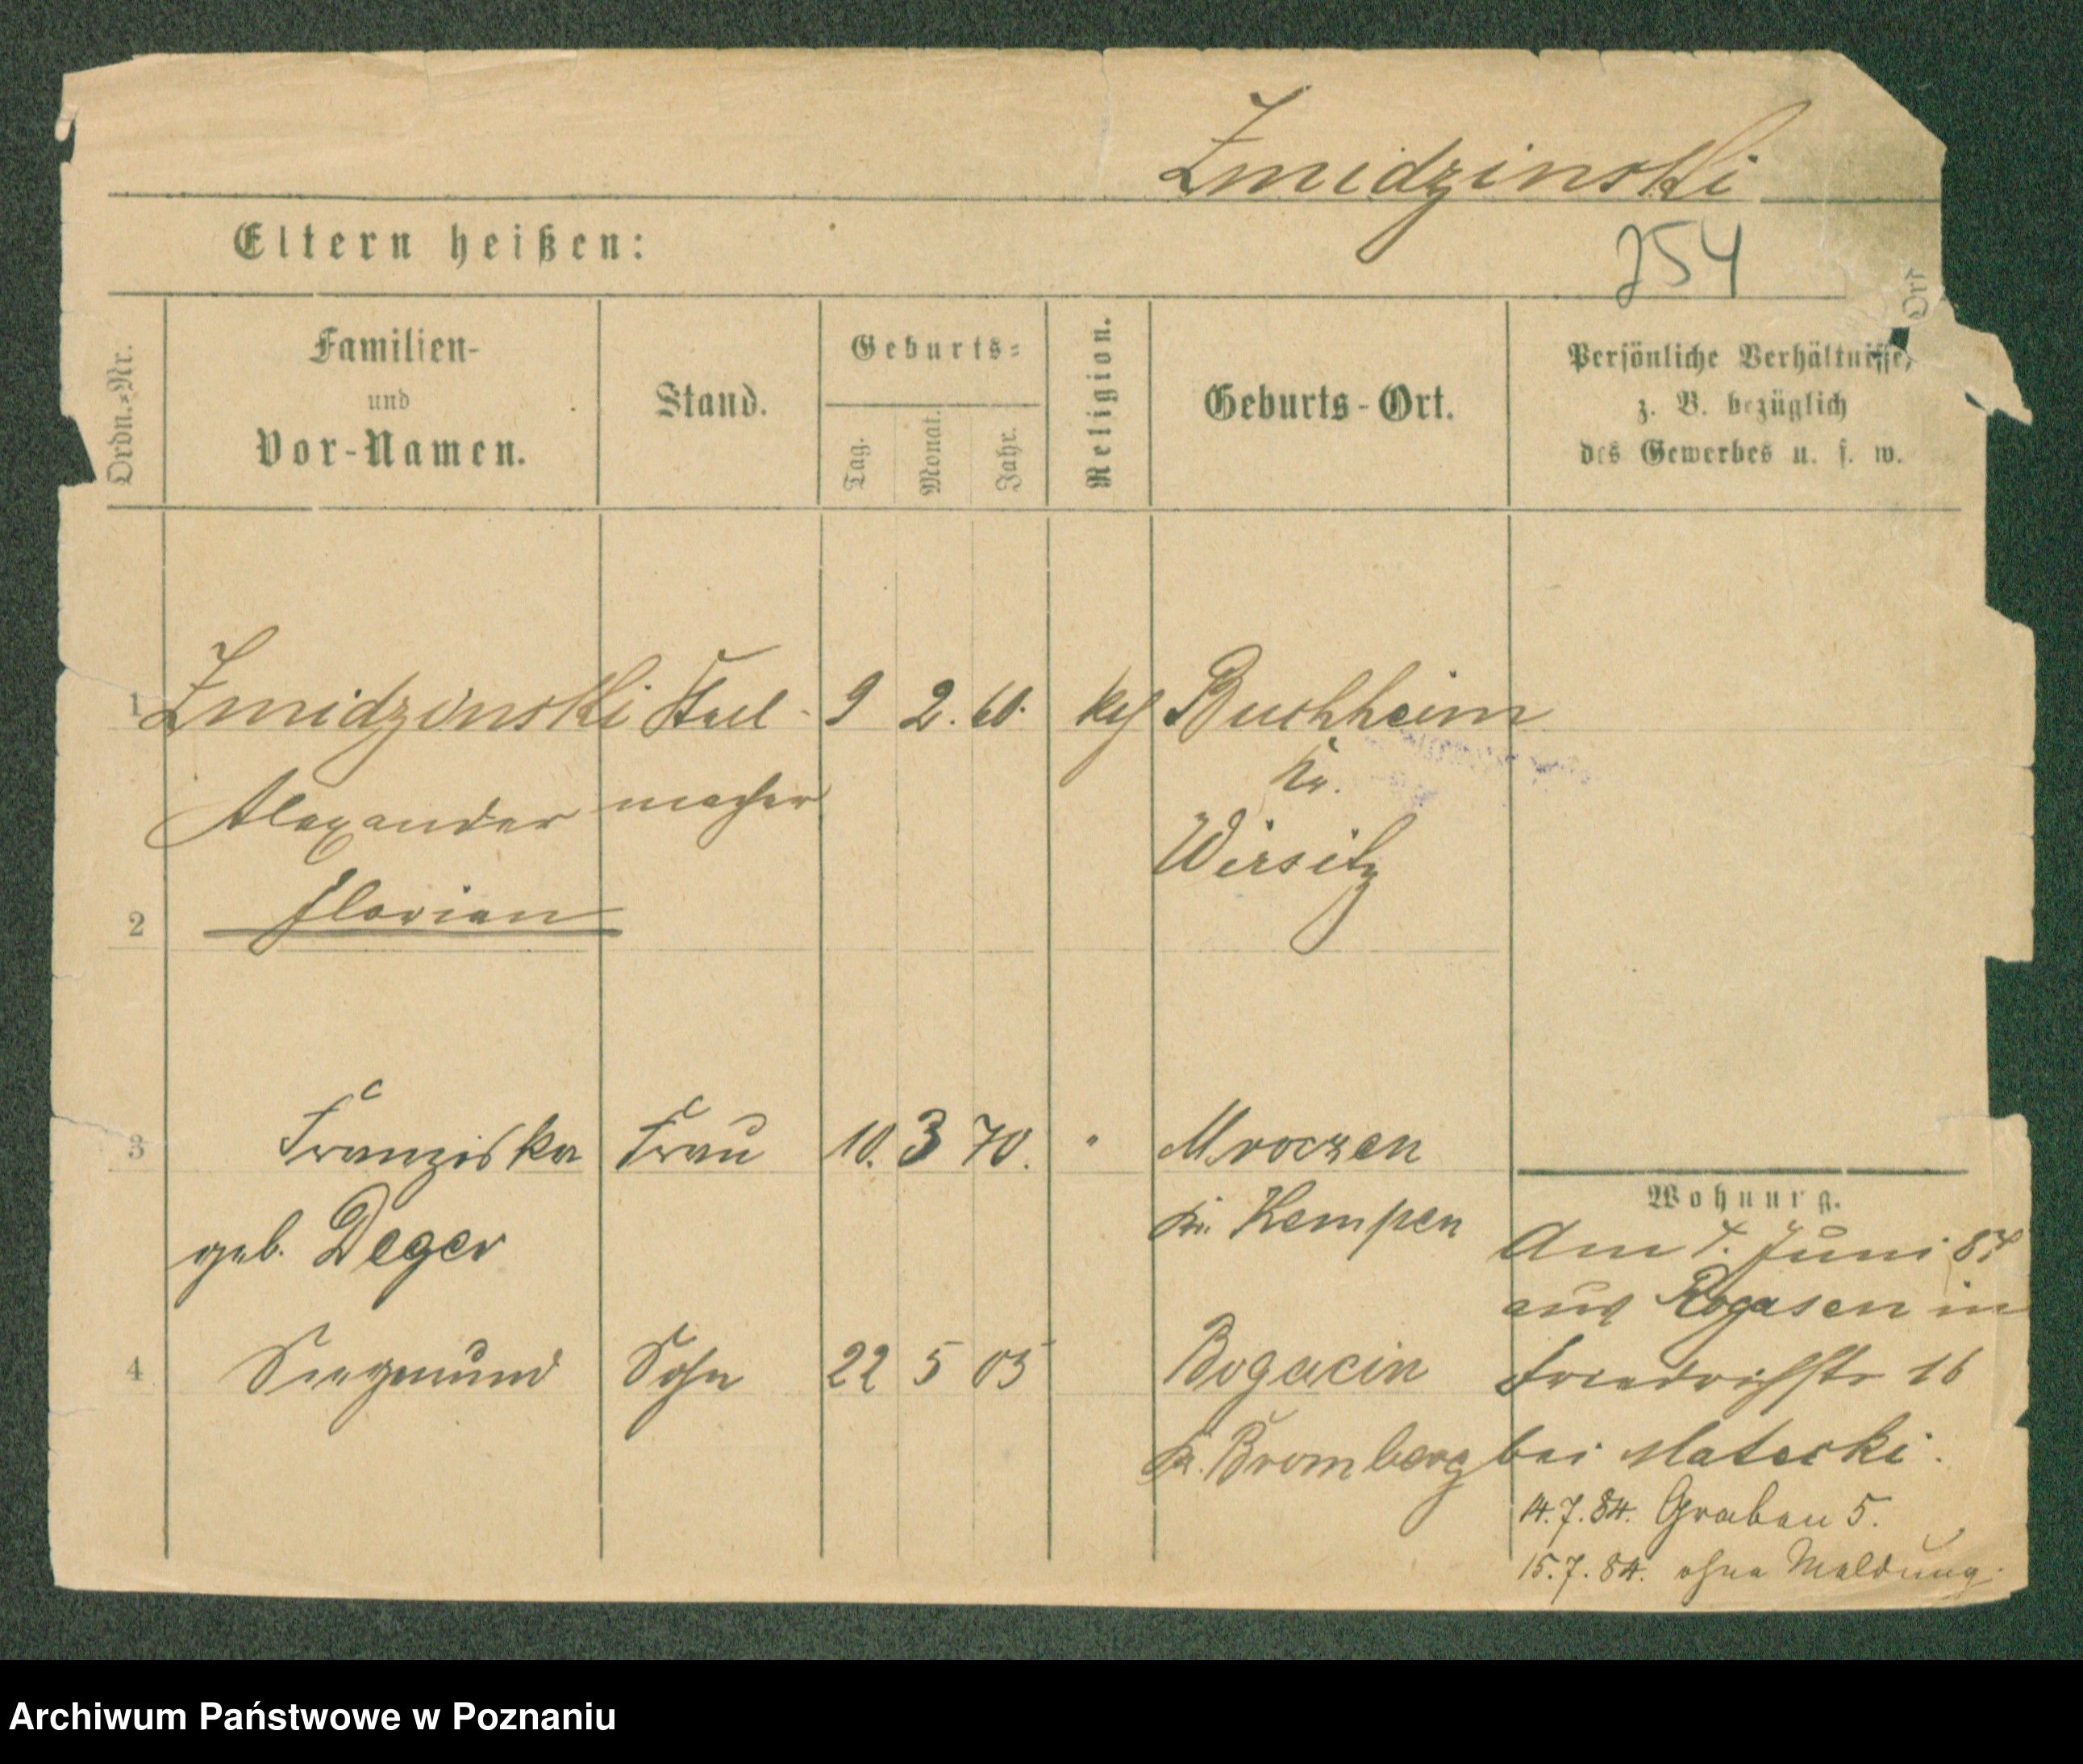 Zmidzinski
Eltern heißen:
254
Ort
Ordn.-Nr.
Familien-
und
Vor-Namen.
Stand.
Geburts-
Tag.
Monat.
Jahr.
Religion.
Geburts-Ort.
Persönliche Verhältnisse,
z. B. bezüglich
des Gewerbes u. s. w.
1 Zmidzinski Stell- 9 2. 60. kth Buchheim
Alexander macher Kr.
Florian Wirsitz
2
3 Franziska Frau 10. 3 70. " Mroczen
geb. Deger Kr. Kempen
4 Siegmund Sohn 22 5 05 Bogacin
Kr. Bromberg
Wohnung.
Am Juni
aus Rogasen in
Friedrichstr 16
bei Matecki.
14.7.84. Graben 5.
15.7.84. ohne Meldung.
Archiwum Państwowe w Poznaniu